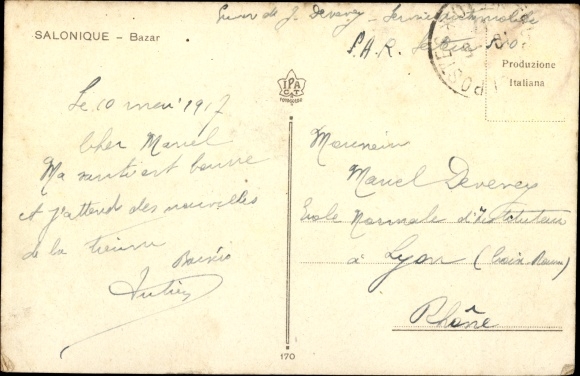 SALONIQUE – Bazar
de J. Devevey – Service automobile
S.A.R.
Produzione
Italiana
IPA
C.T
170
Le 10 mai 1917
Cher Marcel
Ma santé est bonne
et j'attend des nouvelles
de la tienne
Monsieur
Marcel Devevey
Ecole Normale d'Instituteur
à Lyon (Croix Rousse)
Rhône